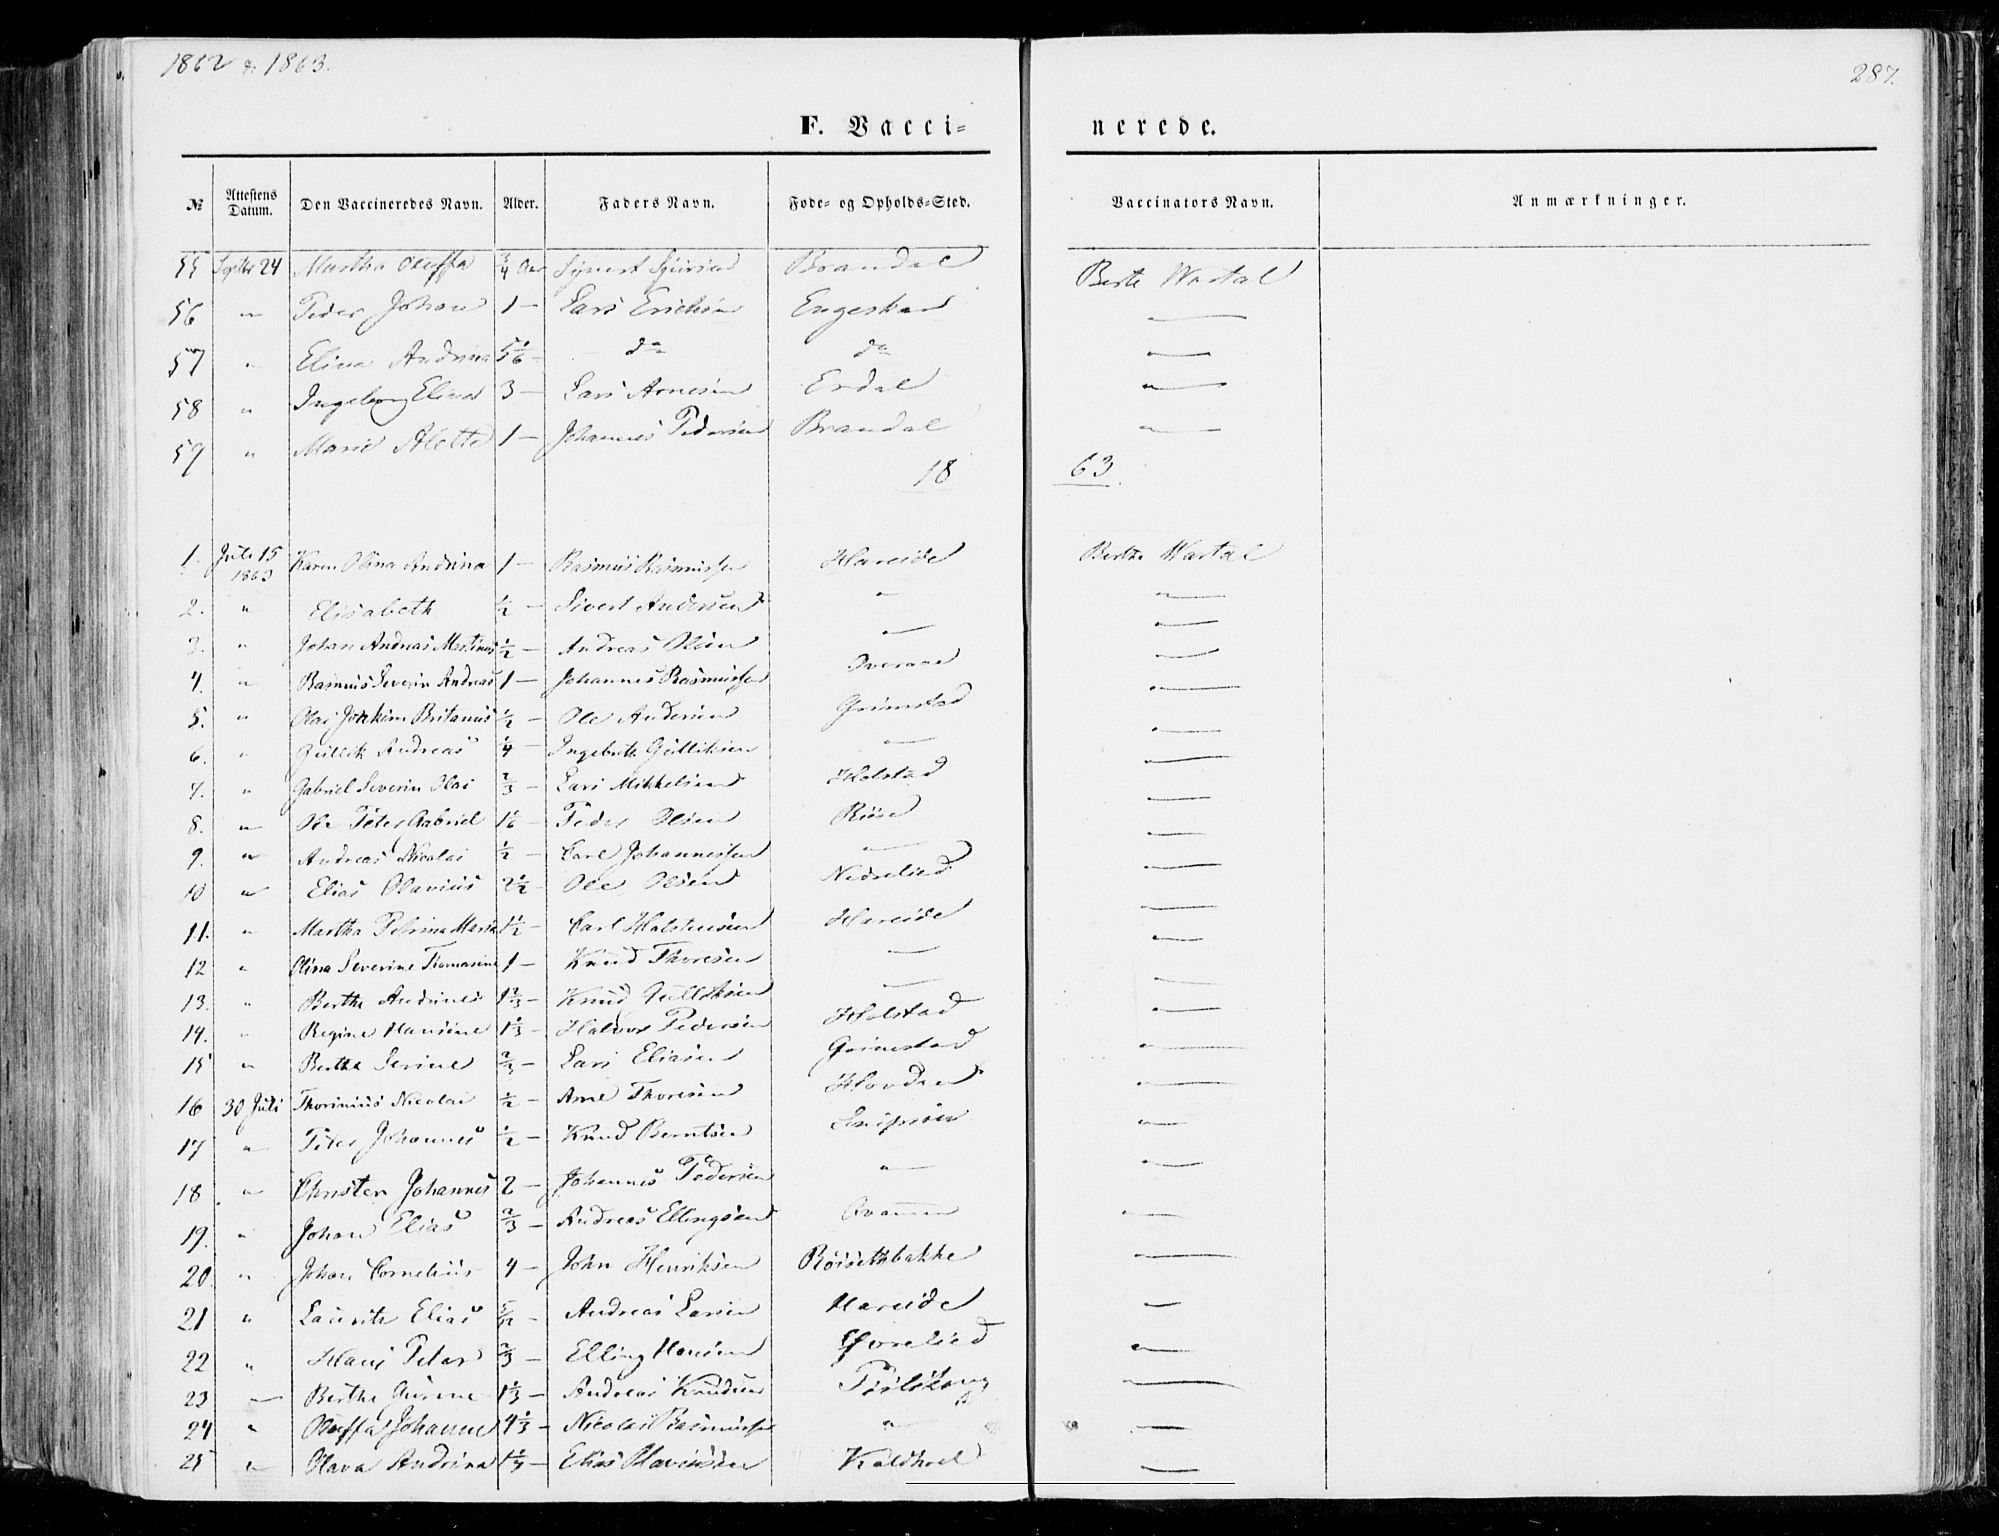 1862 & 1863.
287.
F. Vacci=
nerede.
№ Attestens Datum. Den Vaccineredes Navn. Alder. Faders Navn. Føde- og Opholds-Sted. Vaccinators Navn. Anmærkninger.
55 Septbr 24 Martha Oluffa 3/4 Aar Sjurson Brandal Berte Wartal
56 " Peder Johan 1 — Lars Erichsen Engeskar "
57 " Elina Andrina 5 1/6 — do do "
58 " Ingeborg Elina 3 — Lars Arnesen Erdal "
59 " Marie Alette 1 — Johannes Pedersen Brandal "
18 63.
1. Juli 15 1863 Karen Olina Andrina 1 — Rasmus Rasmussen Hareide Berthe Wartal
2. " Elisabeth 1/2 — Sivert Andersen " "
3. " Johan Andreas Martinus 1/2 — Andreas Olsen " "
4. " Rasmus Severin Andreas 1 — Johannes Rasmussen Overaae "
5. " Olai Joakim Britanus 1/2 — Ole Andersen Grimstad "
6. " Gullik Andreas 1/4 — Ingebrit Gulliksen " "
7. " Gabriel Severin Olai 2/3 — Lars Mikkelsen Holstad "
8. " Ole Peter Gabriel 1 1/6 — Peder Olsen Riise "
9. " Andreas Nicolai 1/2 — Carl Johannessen " "
10 " Elias Olavius 2 1/2 — Ole Olsen Nedrelied "
11. " Martha Petrina Maria 1 1/2 — Carl Halstensen Hareide "
12 " Olina Severine Thomasine 1 — Knud Thoresen " "
13. " Berthe Andrine 1 2/3 — Knud Gulliksen " "
14. " Regine Hansine 1 1/3 — Halvor Pedersen Holstad "
15 " Berthe Serine 2/3 — Lars Eliasen Grimstad "
16 30 Juli Thorinius Nicolai 1/2 — Arne Thoresen Hovden "
17 " Peter Johannes 1/2 — Knud Berntsen "
18 " Christen Johannes 2 — Johannes Pedersen " "
19. " Johan Elias 2/3 — Andreas Ellingsen "
20 " Johan Cornelius 4 — John Henriksen Röisethbakke "
21 " Laurits Elias 5/12 — Andreas Larsen Hareide "
22 " Hans Peter 2/3 — Elling Hansen Øvrelied "
23 — Berthe Gurine 1 1/3 — Andreas Knudsen "
24 " Oluffa Johanne 4 1/3 — Nicolai Rasmussen " "
25 " Olava Andrina — Elias Olavussen Kaldhoel "